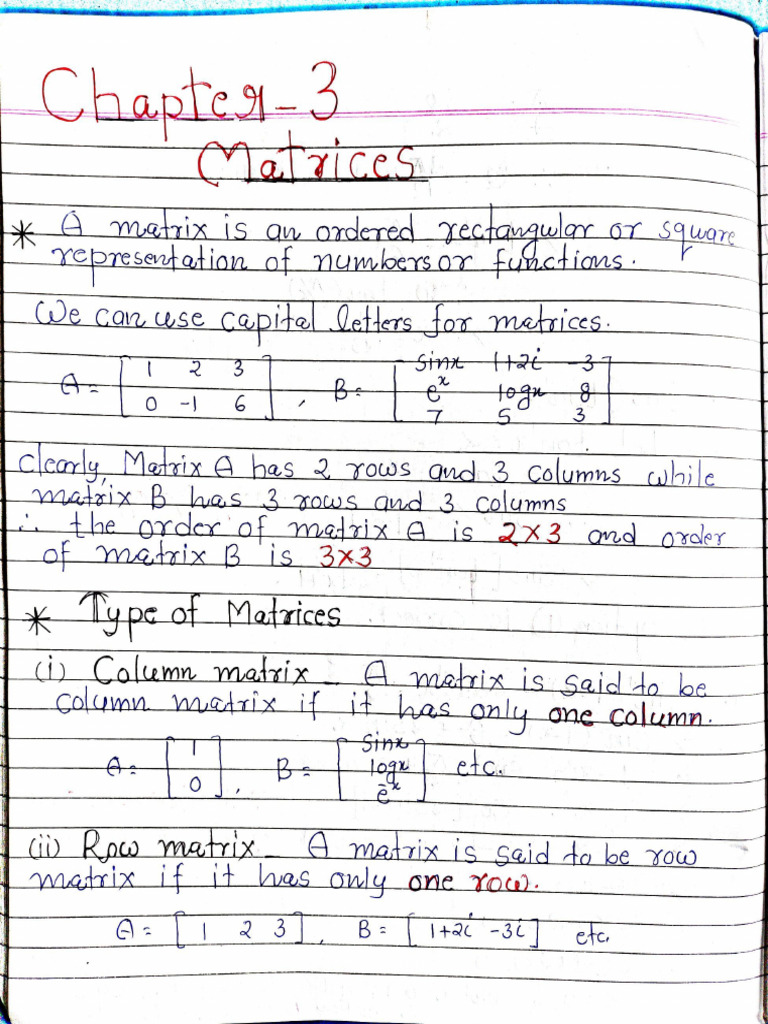 Chapter-3
Matrices
* A matrix is an ordered rectangular or square
representation of numbers or functions.
We can use capital letters for matrices.
A = [ 1 2 3 ; 0 -1 6 ] , B = [ sinx 1+2i -3 ; e^x logx 8 ; 7 5 3 ]
Clearly, Matrix A has 2 rows and 3 columns while
matrix B has 3 rows and 3 columns
∴ the order of matrix A is 2×3 and order
of matrix B is 3×3
* Type of Matrices
(i) Column matrix - A matrix is said to be
column matrix if it has only one column.
A = [ 1 ; 0 ] , B = [ sinx ; logx ; e^-x ] etc.
(ii) Row matrix - A matrix is said to be row
matrix if it has only one row.
A = [ 1 2 3 ] , B = [ 1+2i -3i ] etc.